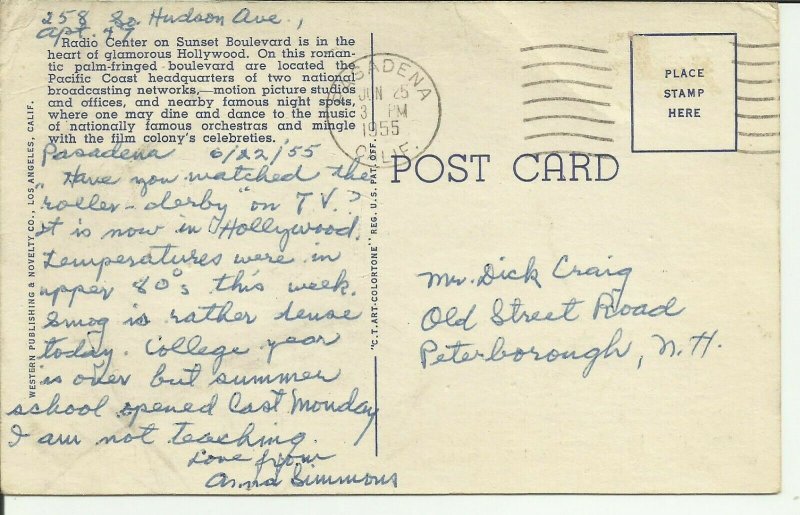 258 So Hudson Ave.,
Apt. 27
Radio Center on Sunset Boulevard is in the
heart of glamorous Hollywood. On this roman-
tic palm-fringed boulevard are located the
Pacific Coast headquarters of two national
broadcasting networks,—motion picture studios
and offices, and nearby famous night spots,
where one may dine and dance to the music
of nationally famous orchestras and mingle
with the film colony's celebreties.
Pasadena 6/22/55
Have you watched the
"roller-derby" on T V.?
It is now in Hollywood.
Temperatures were in
upper 80°s this week.
Smog is rather dense
today. College year
is over but summer
school opened last Monday
I am not teaching.
Love from
Anna Simmons
WESTERN PUBLISHING & NOVELTY CO., LOS ANGELES, CALIF.
"C.T. ART-COLORTONE" REG. U.S. PAT. OFF.
PASADENA
JUN 25
3 PM
1955
CALIF.
PLACE
STAMP
HERE
POST CARD
Mr. Dick Craig
Old Street Road
Peterborough, N.H.